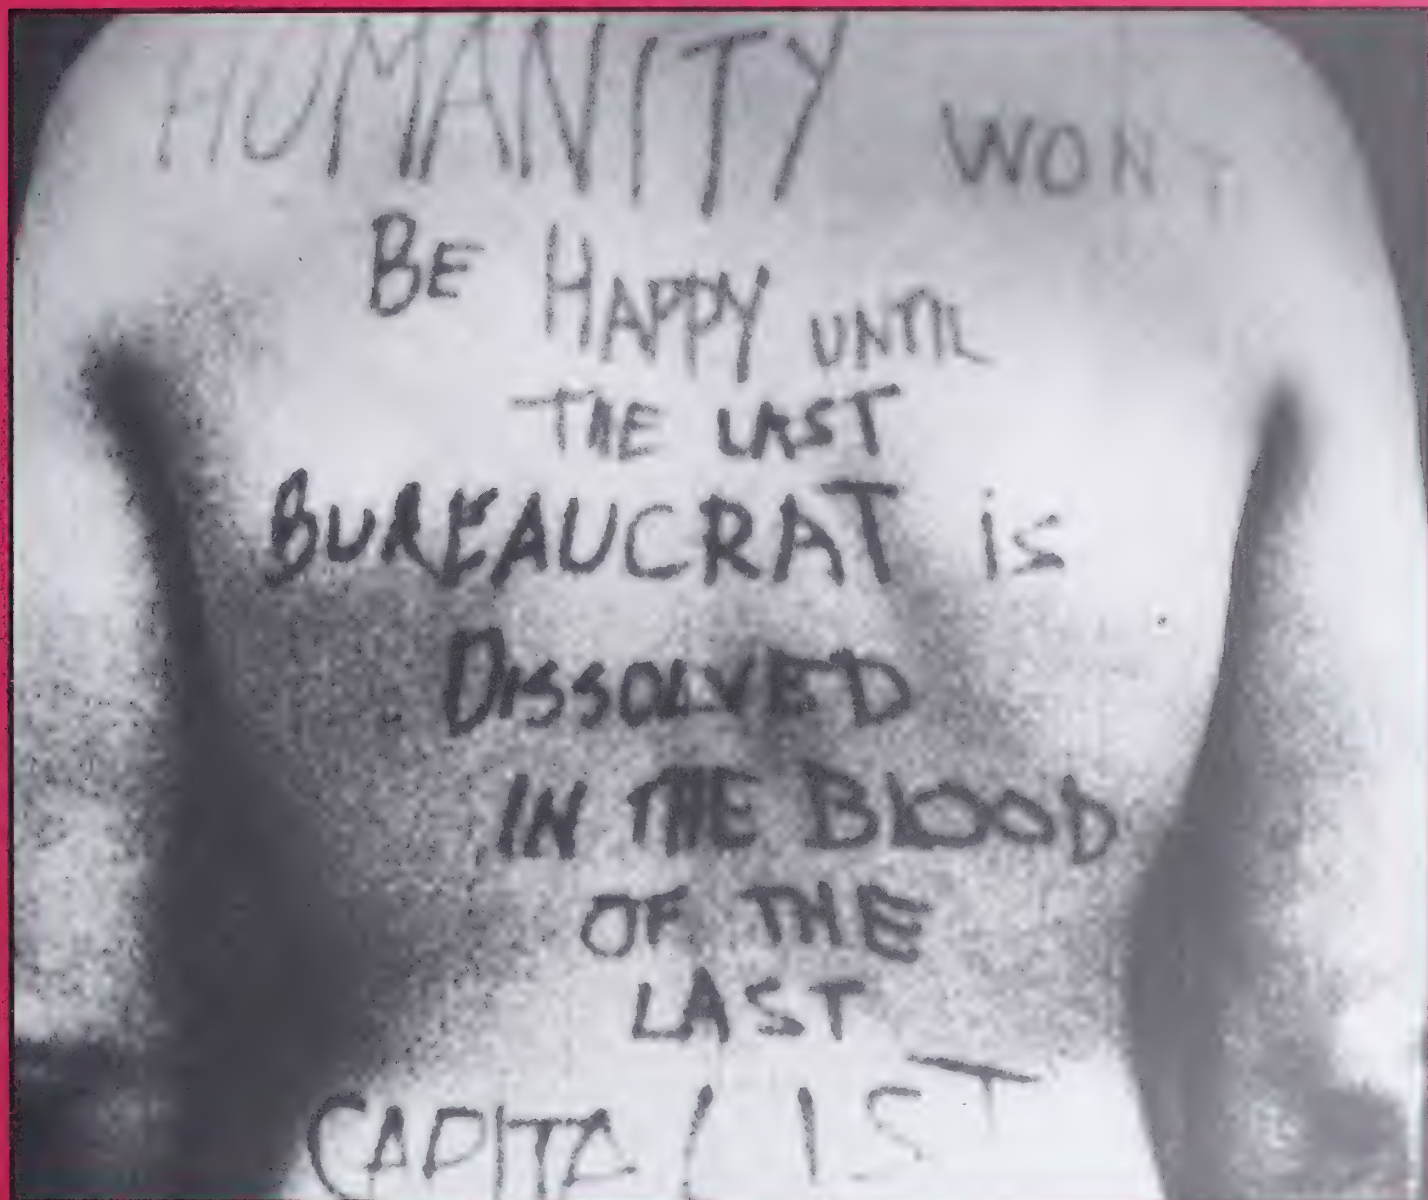 HUMANITY WON'T
BE HAPPY UNTIL
THE LAST
BUREAUCRAT is
DISSOLVED
IN THE BLOOD
OF THE
LAST
CAPITALIST